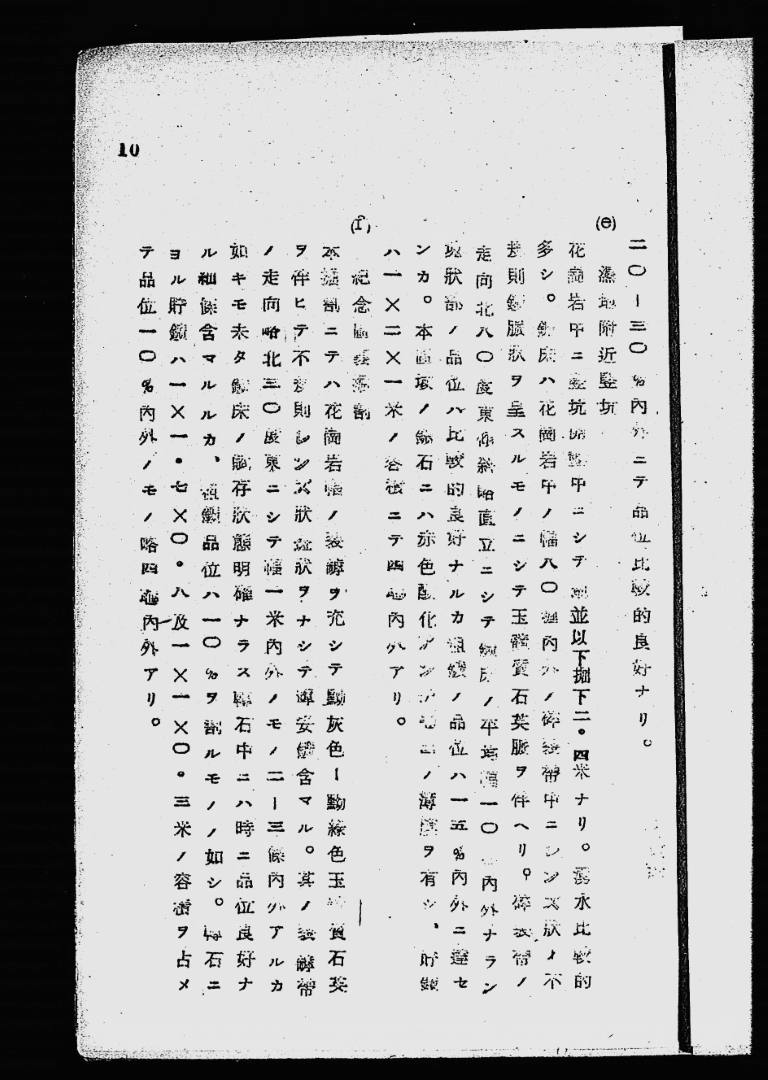 10
二〇ー三〇%內外ニテ品位比較的良好ナリ。
(e) 濕地附近竪坑
花崗岩中ニ竪坑開鑿中ニシテ 並以下掘下二・四米ナリ。湧水比較的
多シ。鑛床ハ花崗岩中ノ幅八〇 內外ノ碎裂帶中ニレンズ狀ノ不
規則鑛脈狀ヲ呈スルモノニシテ玉髓質石英脈ヲ伴ヘリ。碎裂帶ノ
走向北八〇度東傾斜略直立ニシテ鑛床ノ平均幅一〇 內外ナラン
狀部ノ品位ハ比較的良好ナルカ粗鑛ノ品位ハ一五%內外ニ達セ
ンカ。本區域ノ鑛石ニハ赤色酸化アンチモニノ薄膜ヲ有シ、貯鑛
ハ一×二×一米ノ容積ニテ四 內外アリ。
(f) 紀念 露頭
本 ニテハ花崗岩 ノ裂罅ヲ充シテ黝灰色ー黝綠色玉 質石英
ヲ伴ヒテ不規則レンズ狀 狀ヲナシテ輝安鑛含マル。其ノ裂罅帶
ノ走向略北三〇度東ニシテ幅一米內外ノモノ二ー三條內外アルカ
如キモ未タ鑛床ノ賦存狀態明確ナラス轉石中ニハ時ニ品位良好ナ
ル細條含マルルカ、粗鑛品位ハ一〇%ヲ割ルモノノ如シ。轉石ニ
ヨル貯鑛ハ一×一・七×〇・八及一×一×〇・三米ノ容積ヲ占メ
テ品位一〇%內外ノモノ略四 內外アリ。